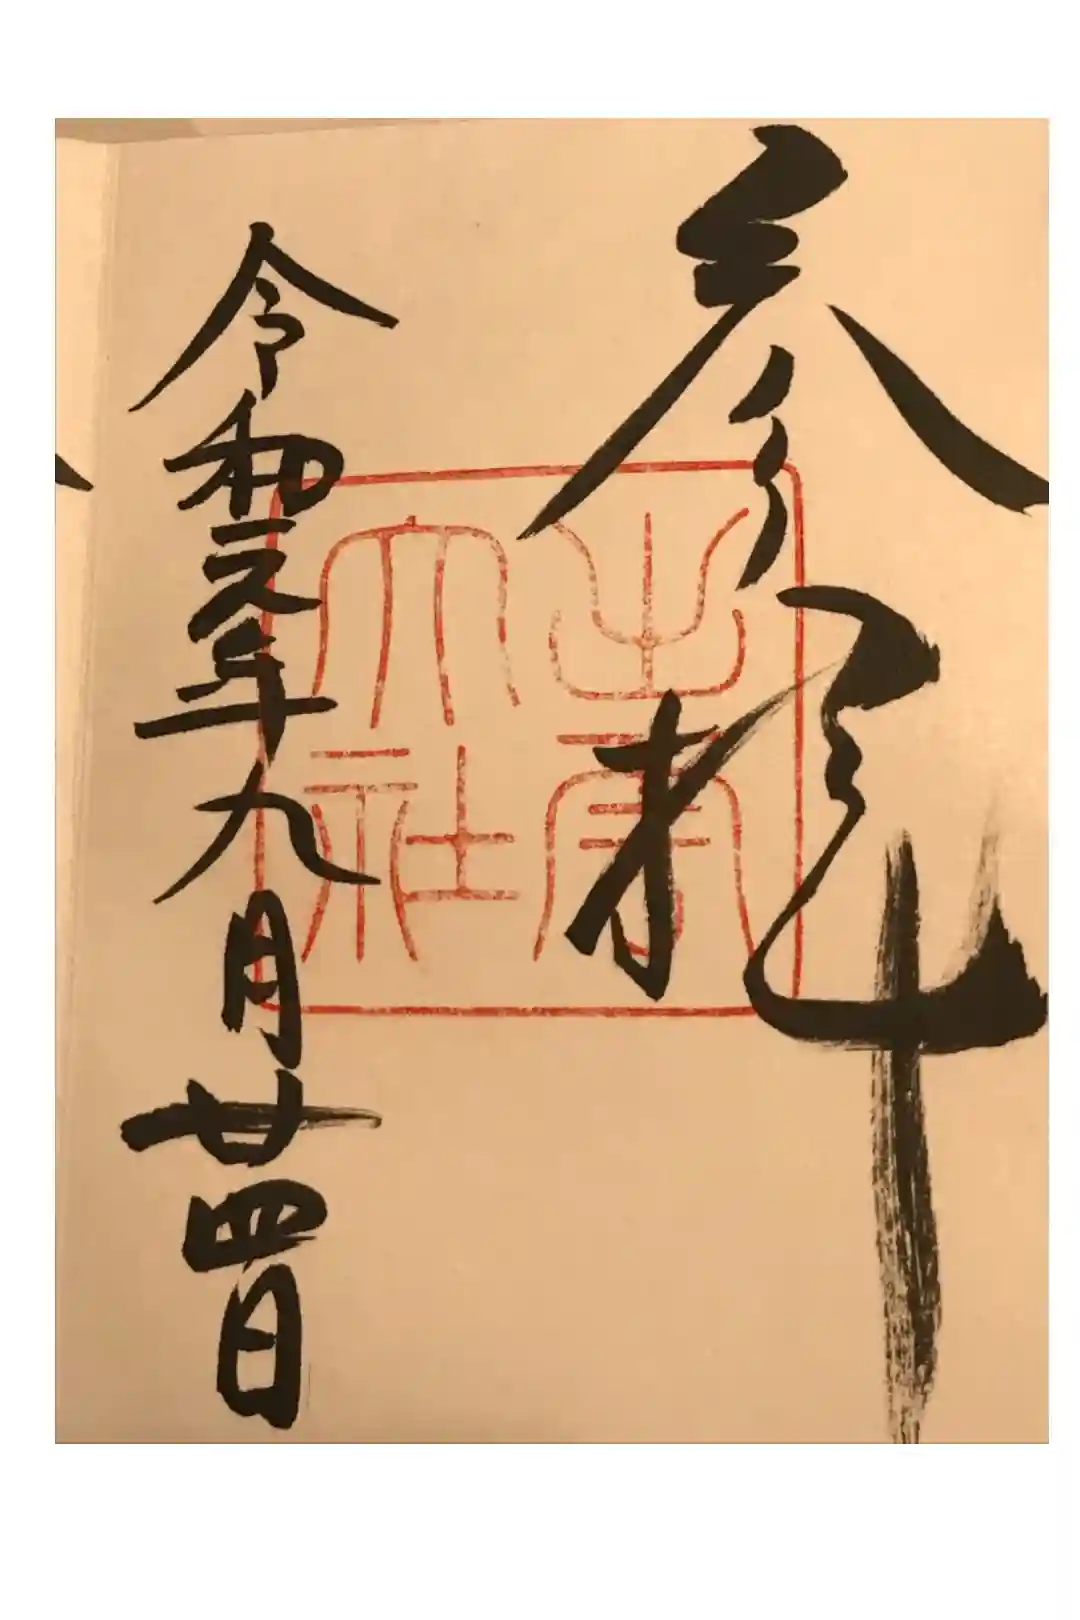 参拝
出雲
大社
令和元年九月廿四日